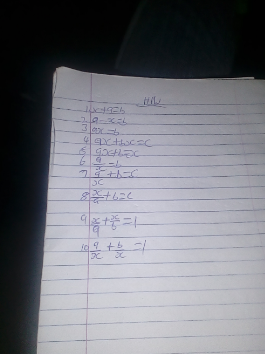 H/W
1. x+a=b
2 a-x=b
3 ax=b
4 ax+bx=c
5 ax+b=c
6 a/x=b
7 a/x+b=c
8 x/a+b=c
9 x/a+x/b=1
10 a/x+b/x=1